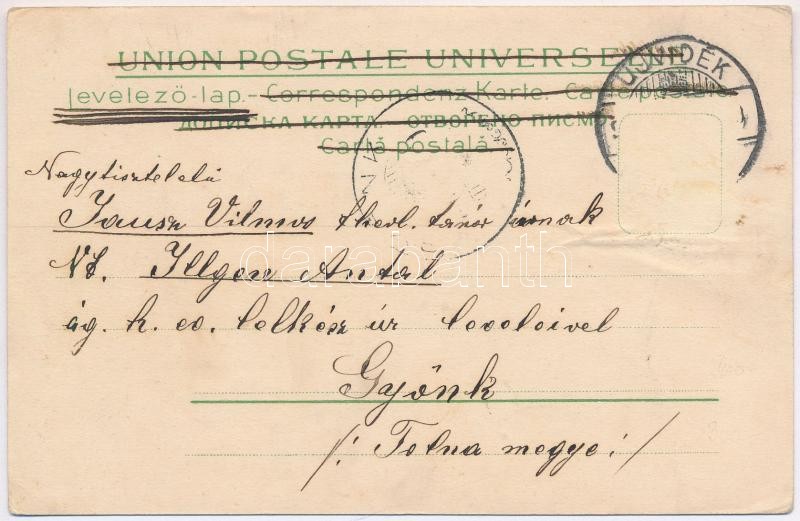 UNION POSTALE UNIVERSELLE
ÚJVIDÉK
Levelező-lap. - Correspondenz-Karte. Carte postale
ДОПИСКА КАРТА. ОТВОРЕНО ПИСМО
Cartă postală
Nagytiszteletű
Jausz Vilmos theol. tanár úrnak
Nt. Illgen Antal
darabanth
ág. h. ev. lelkész úr leveleivel
Gyönk
/: Tolna megye :/